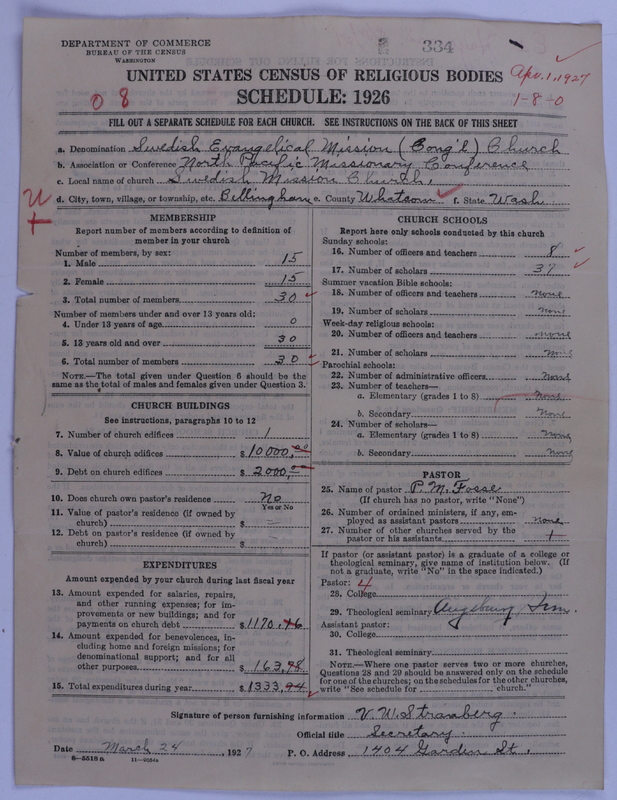 334
DEPARTMENT OF COMMERCE
BUREAU OF THE CENSUS
WASHINGTON
UNITED STATES CENSUS OF RELIGIOUS BODIES
Apr. 1, 1927
SCHEDULE: 1926
1-8-0
0 8
FILL OUT A SEPARATE SCHEDULE FOR EACH CHURCH. SEE INSTRUCTIONS ON THE BACK OF THIS SHEET
a. Denomination Swedish Evangelical Mission (Cong'l) Church
b. Association or Conference North Pacific Missionary Conference
c. Local name of church Swedish Mission Church,
d. City, town, village, or township, etc. Bellingham e. County Whatcom f. State Wash
MEMBERSHIP
Report number of members according to definition of
member in your church
Number of members, by sex:
1. Male 15
2. Female 15
3. Total number of members 30
Number of members under and over 13 years old:
4. Under 13 years of age 0
5. 13 years old and over 30
6. Total number of members 30
NOTE.—The total given under Question 6 should be the
same as the total of males and females given under Question 3.
CHURCH BUILDINGS
See instructions, paragraphs 10 to 12
7. Number of church edifices 1
8. Value of church edifices $ 10000,00
9. Debt on church edifices $ 2000,00
10. Does church own pastor's residence No
Yes or No
11. Value of pastor's residence (if owned by
church) $ —
12. Debt on pastor's residence (if owned by
church) $ —
EXPENDITURES
Amount expended by your church during last fiscal year
13. Amount expended for salaries, repairs,
and other running expenses; for im-
provements or new buildings; and for
payments on church debt $ 1170,46
14. Amount expended for benevolences, in-
cluding home and foreign missions; for
denominational support; and for all
other purposes $ 163,48
15. Total expenditures during year $ 1333,94
CHURCH SCHOOLS
Report here only schools conducted by this church
Sunday schools:
16. Number of officers and teachers 8
17. Number of scholars 37
Summer vacation Bible schools:
18. Number of officers and teachers none
19. Number of scholars none
Week-day religious schools:
20. Number of officers and teachers none
21. Number of scholars none
Parochial schools:
22. Number of administrative officers none
23. Number of teachers—
a. Elementary (grades 1 to 8) none
b. Secondary none
24. Number of scholars—
a. Elementary (grades 1 to 8) none
b. Secondary none
PASTOR
25. Name of pastor P. M. Fosse
(If church has no pastor, write "None")
26. Number of ordained ministers, if any, em-
ployed as assistant pastors none
27. Number of other churches served by the
pastor or his assistants 1
If pastor (or assistant pastor) is a graduate of a college or
theological seminary, give name of institution below. (If
not a graduate, write "No" in the space indicated.)
Pastor: 4
28. College
29. Theological seminary Augsburg Sem.
Assistant pastor:
30. College
31. Theological seminary
NOTE.—Where one pastor serves two or more churches,
Questions 28 and 29 should be answered only on the schedule
for one of the churches; on the schedules for the other churches,
write "See schedule for church."
Signature of person furnishing information V. W. Stranberg.
Official title Secretary.
Date March 24, 1927 P. O. Address 1404 Garden St.,
8-5518a